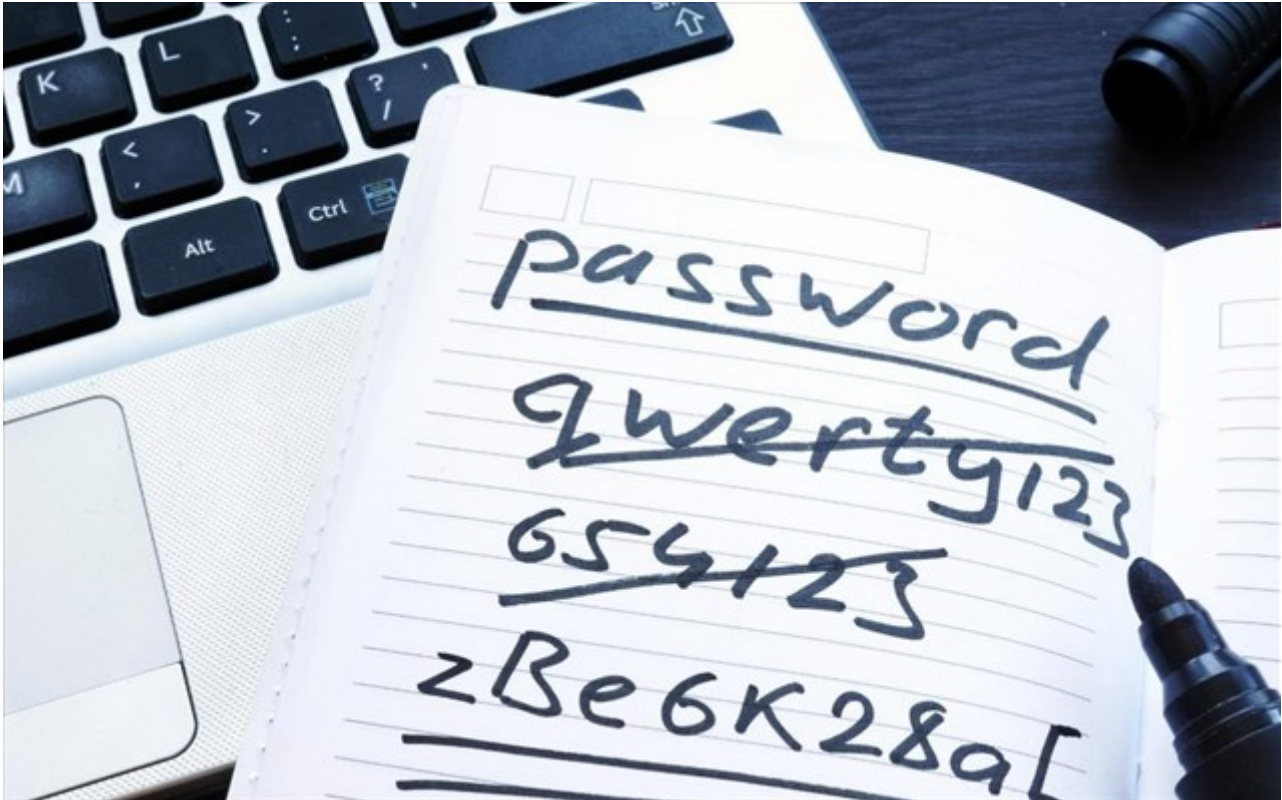 K
L
:
;
?
/
>
.
<
,
M
Alt
Ctrl
password
qwerty123
654123
zBe6K28a[